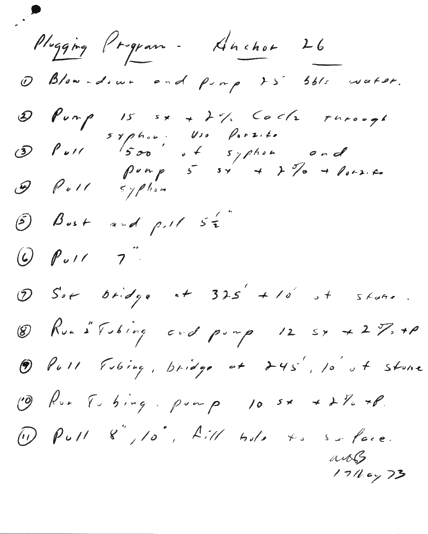 Plugging Program - Anchor 26
① Blow-down and pump 25 bbls water.
② Pump 15 sx + 2% CaCl2 through
syphon. Use Pozite
③ Pull 500' of syphon and
pump 5 sx + 2% + Pozite
④ Pull syphon
⑤ Bust and pull 5½"
⑥ Pull 7"
⑦ Set bridge at 325' + 10' of stone.
⑧ Run 2" Tubing and pump 12 sx + 2% +P
⑨ Pull Tubing, bridge at 245', 10' of stone
⑩ Run Tubing. pump 10 sx + 2% +P.
⑪ Pull 8", 10", fill hole to surface.
17 May 73